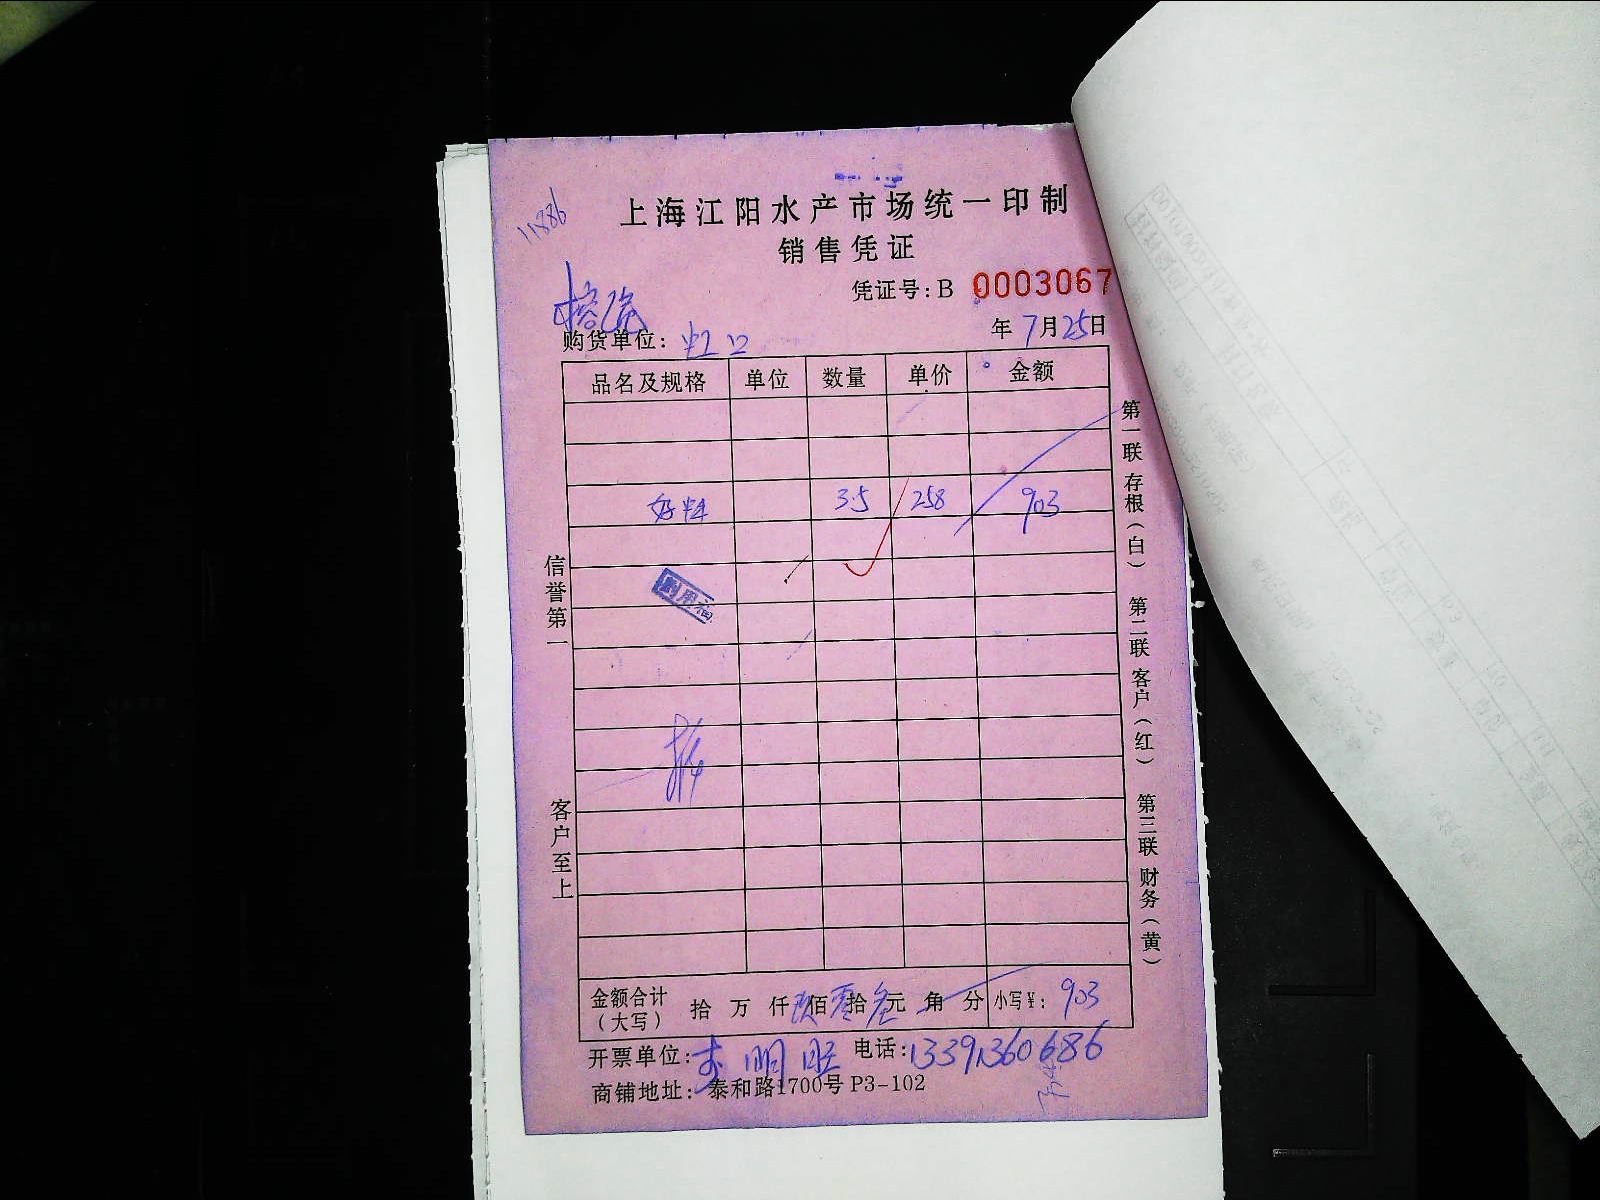 11886
上海江阳水产市场统一印制
销售凭证
凭证号:B 0003067
年7月25日
购货单位: 虹口
品名及规格 单位 数量 单价 金额
好料 3.5 258 903
信誉第一
客户至上
第一联 存根(白) 第二联 客户(红) 第三联 财务(黄)
金额合计(大写) 拾 万 仟 玖佰 零拾 叁元 角 分 小写¥: 903
开票单位: 李明旺 电话: 13391360686
商铺地址: 泰和路1700号 P3-102